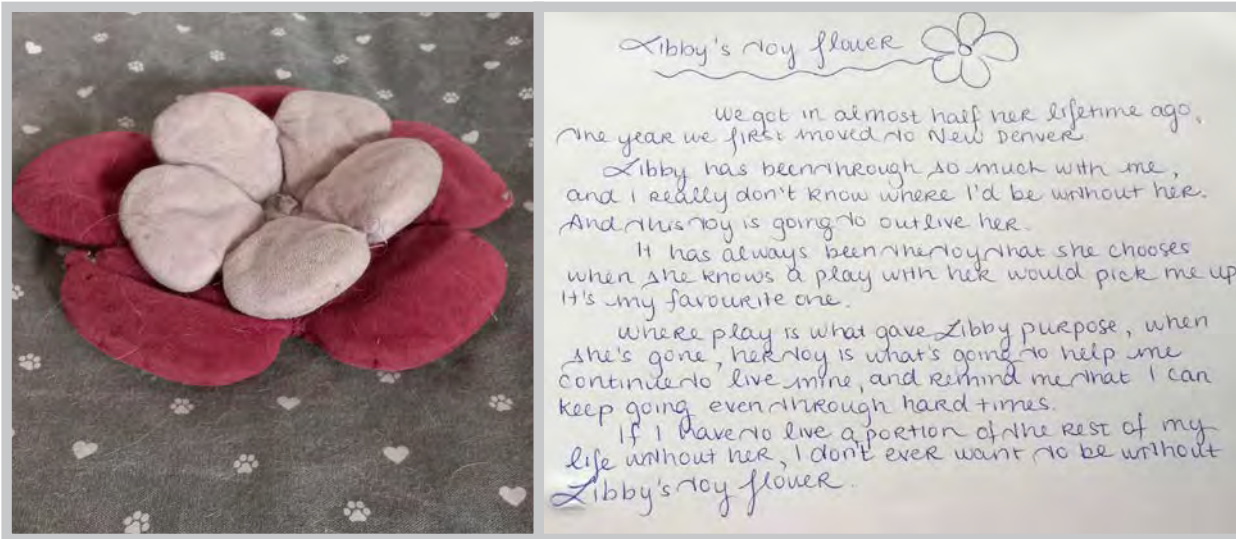 Libby's toy flower
We got in almost half her lifetime ago,
the year we first moved to New Denver.
Libby has been through so much with me,
and I really don't know where I'd be without her.
And this toy is going to outlive her.
It has always been the toy that she chooses
when she knows a play with her would pick me up
It's my favourite one.
Where play is what gave Libby purpose, when
she's gone, her toy is what's going to help me
continue to live mine, and remind me that I can
keep going even through hard times.
If I have to live a portion of the rest of my
life without her, I don't ever want to be without
Libby's toy flower.